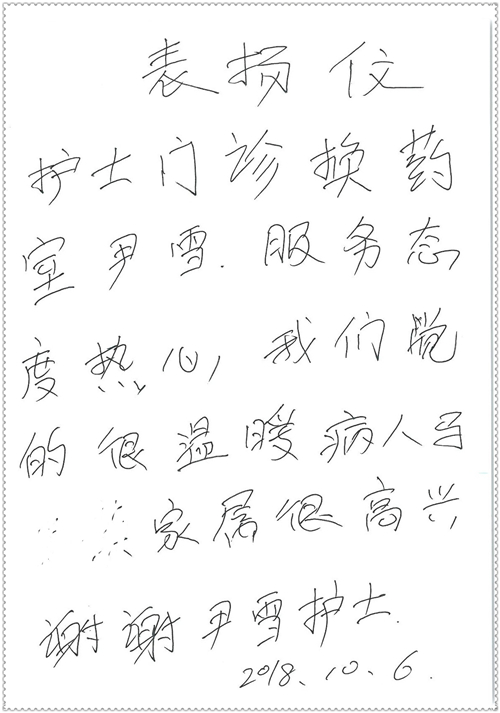 表扬信
护士门诊换药
室尹雪.服务态
度热心,我们觉
的很温暖病人与
家属很高兴
谢谢尹雪护士.
2018、10、6.